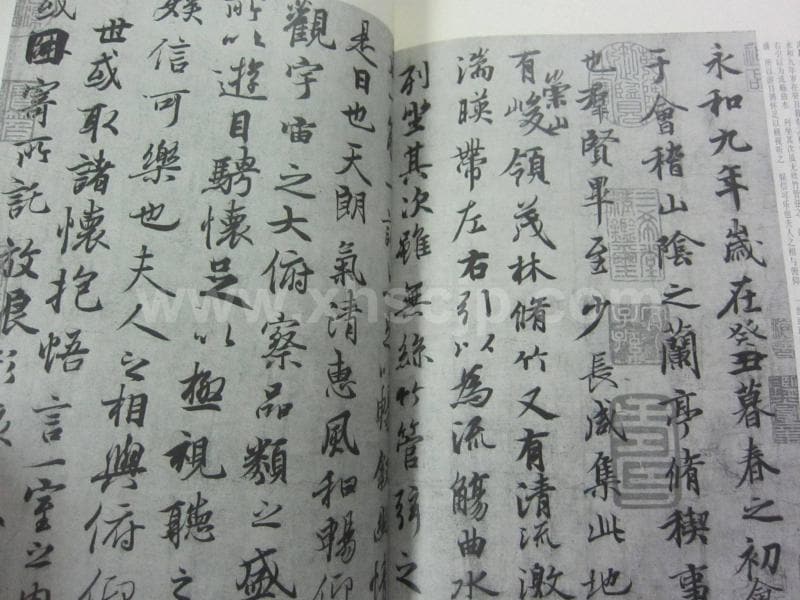 永和九年歲在癸丑暮春之初會
于會稽山陰之蘭亭脩禊事
也羣賢畢至少長咸集此地
有崇山峻領茂林脩竹又有清流激
湍暎帶左右引以為流觴曲水
列坐其次雖無絲竹管弦之
以暢敘幽
是日也天朗氣清惠風和暢仰
觀宇宙之大俯察品類之盛
所以遊目騁懷足以極視聽之
娛信可樂也夫人之相與俯仰
世或取諸懷抱悟言一室之內
或因寄所託放浪形